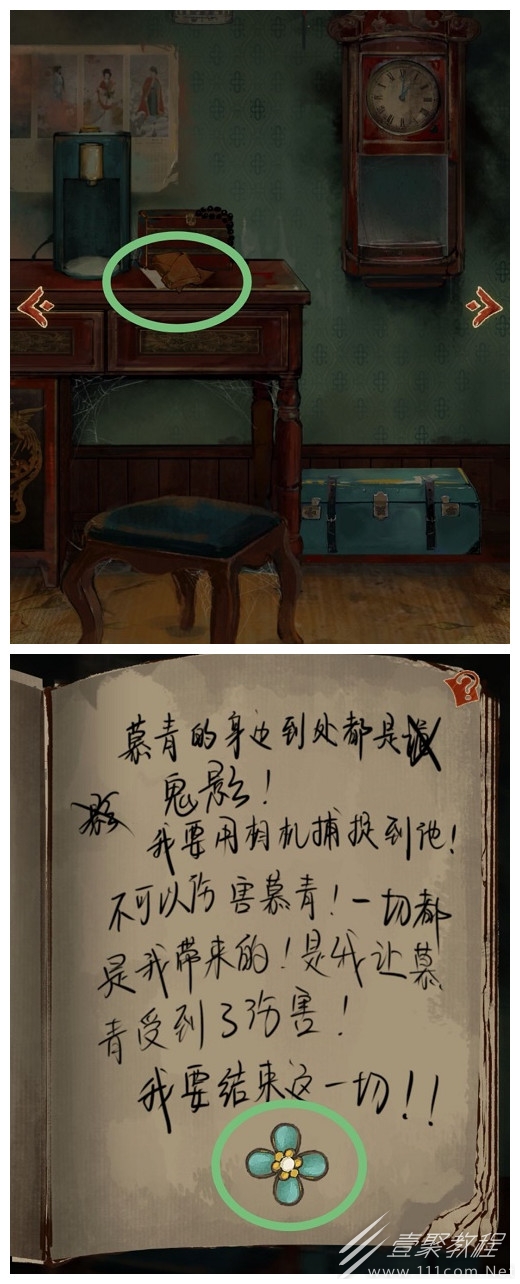 慕青的身边到处都是
鬼影！
我要用相机捕捉到他！
不可以伤害慕青！一切都
是我带来的！是我让慕
青受到了伤害！
我要结束这一切！！
?
壹聚教程
www.111com.Net